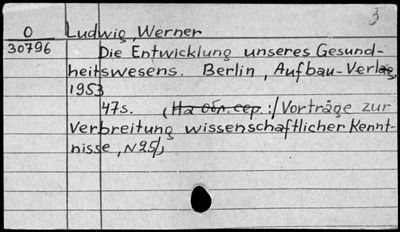 3
O Ludwig, Werner
30796 Die Entwicklung unseres Gesund-
heitswesens. Berlin, Aufbau-Verlag,
1953
47s. (На обл. сер.:/Vorträge zur
Verbreitung wissenschaftlicher Kennt-
nisse, N25/,